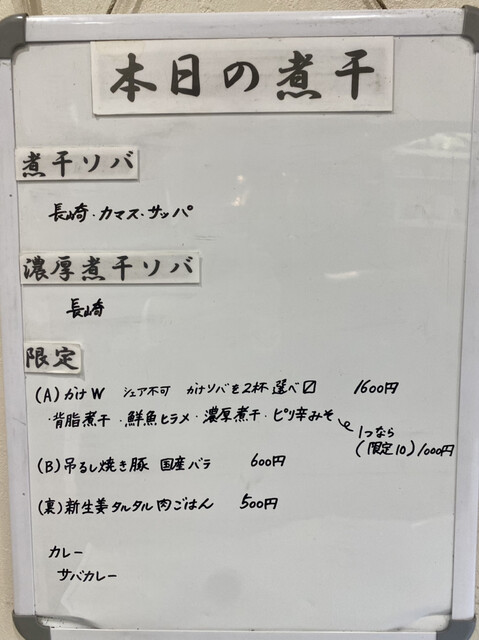 本日の煮干
煮干ソバ
長崎・カマス・サッパ
濃厚煮干ソバ
長崎
限定
(A) かけW シェア不可 かけソバを2杯選べ〼 1600円
・背脂煮干・鮮魚ヒラメ・濃厚煮干・ピリ辛みそ
1つなら
(限定10) 1000円
(B) 吊るし焼き豚 国産バラ 600円
(裏) 新生姜タルタル肉ごはん 500円
カレー
サバカレー